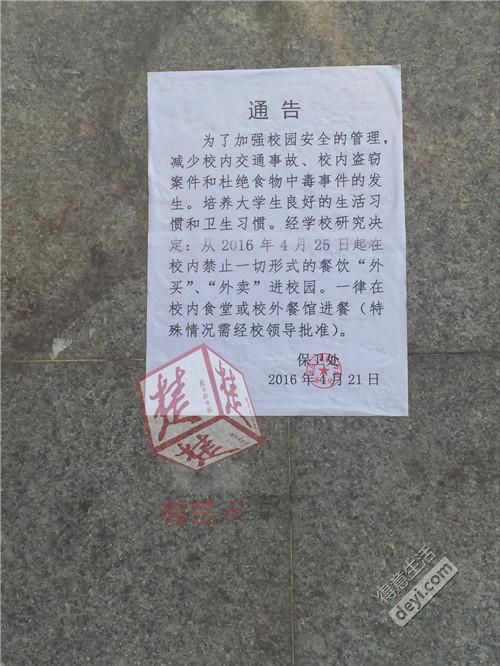 通告
为了加强校园安全的管理,
减少校内交通事故、校内盗窃
案件和杜绝食物中毒事件的发
生。培养大学生良好的生活习
惯和卫生习惯。经学校研究决
定：从2016年4月25日起在
校内禁止一切形式的餐饮“外
买”、“外卖”进校园。一律在
校内食堂或校外餐馆进餐（特
殊情况需经校领导批准）。
保卫处
2016年4月21日
楚
楚
楚
看楚天
得意生活
deyi.com